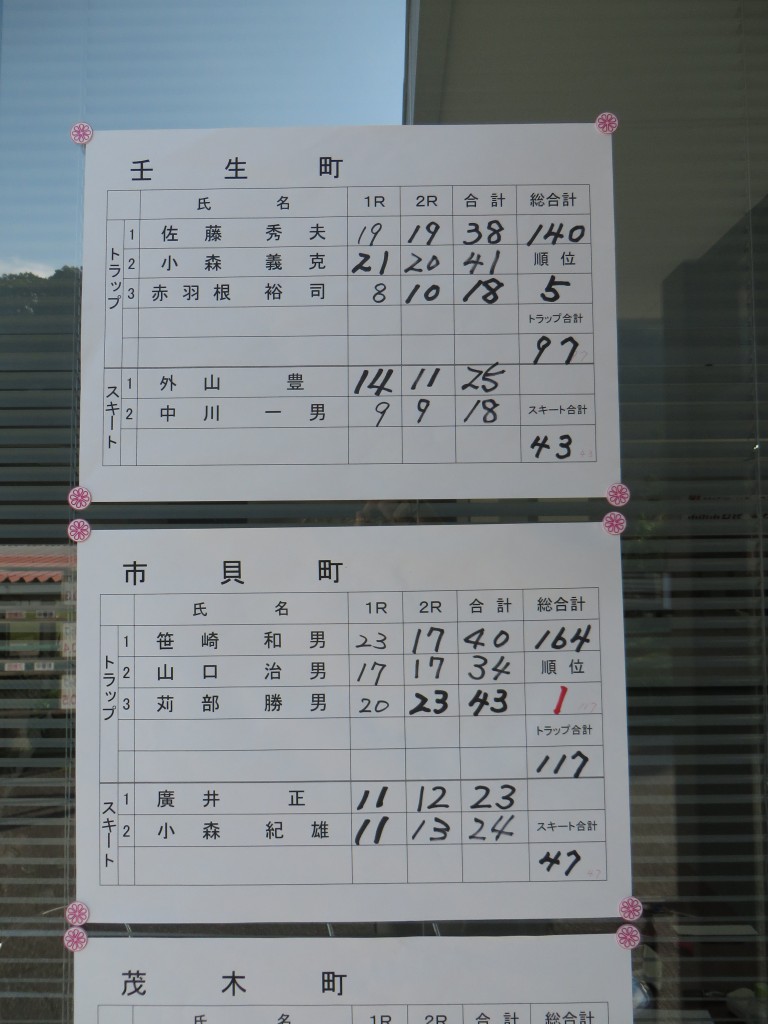 壬生町
氏名 1R 2R 合計 総合計
トラップ 1 佐藤秀夫 19 19 38 140
2 小森義克 21 20 41 順位
3 赤羽根裕司 8 10 18 5
トラップ合計
97
スキート 1 外山豊 14 11 25
2 中川一男 9 9 18 スキート合計
43
市貝町
氏名 1R 2R 合計 総合計
トラップ 1 笹崎和男 23 17 40 164
2 山口治男 17 17 34 順位
3 苅部勝男 20 23 43 1
トラップ合計
117
スキート 1 廣井正 11 12 23
2 小森紀雄 11 13 24 スキート合計
47
茂木町
氏名 1R 2R 合計 総合計